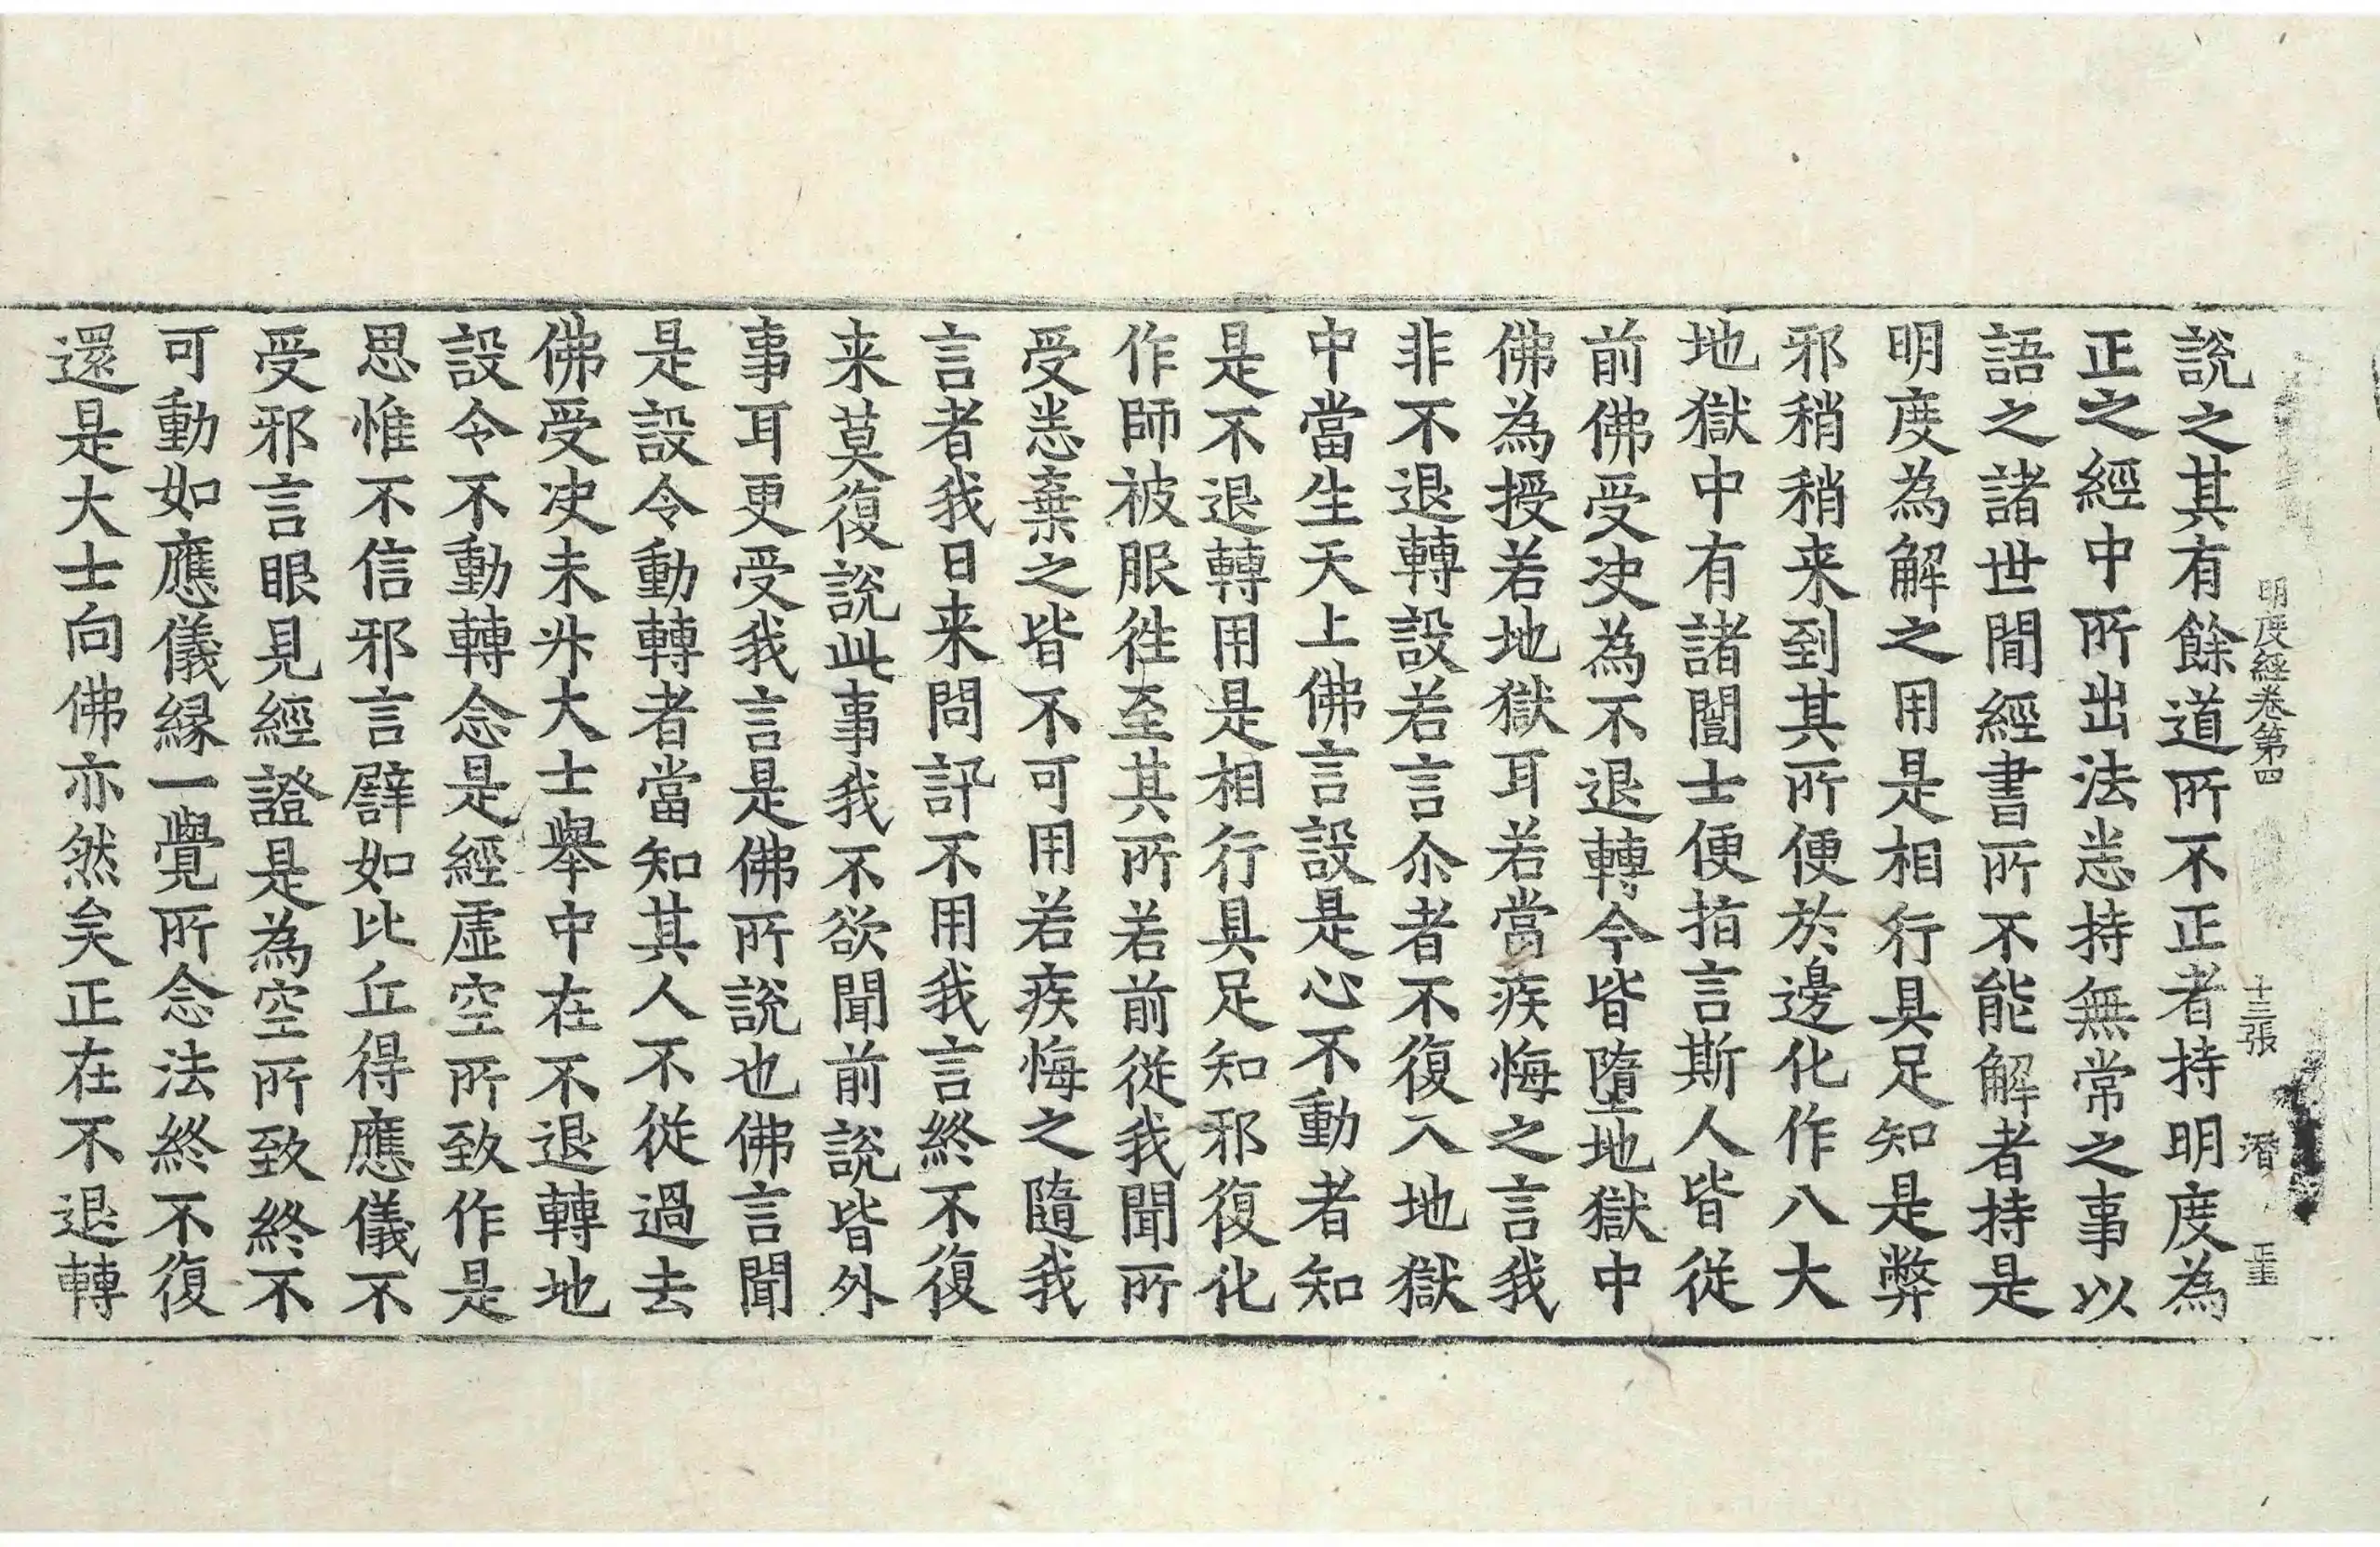 明度經卷第四 十三張 潛
說之其有餘道所不正者持明度為
正之經中所出法恙持無常之事以
語之諸世間經書所不能解者持是
明度為解之用是相行具足知是弊
邪稍稍来到其所便於邊化作八大
地獄中有諸闓士便指言斯人皆從
前佛受决為不退轉今皆墮地獄中
佛為授若地獄耳若當疾悔之言我
非不退轉設若言尒者不復入地獄
中當生天上佛言設是心不動者知
是不退轉用是相行具足知邪復化
作師被服徃至其所若前從我聞所
受恙棄之皆不可用若疾悔之隨我
言者我日来問訊不用我言終不復
来莫復說此事我不欲聞前說皆外
事耳更受我言是佛所說也佛言聞
是設令動轉者當知其人不從過去
佛受决未升大士舉中在不退轉地
設令不動轉念是經虛空所致作是
思惟不信邪言譬如比丘得應儀不
受邪言眼見經證是為空所致終不
可動如應儀緣一覺所念法終不復
還是大士向佛亦然矣正在不退轉